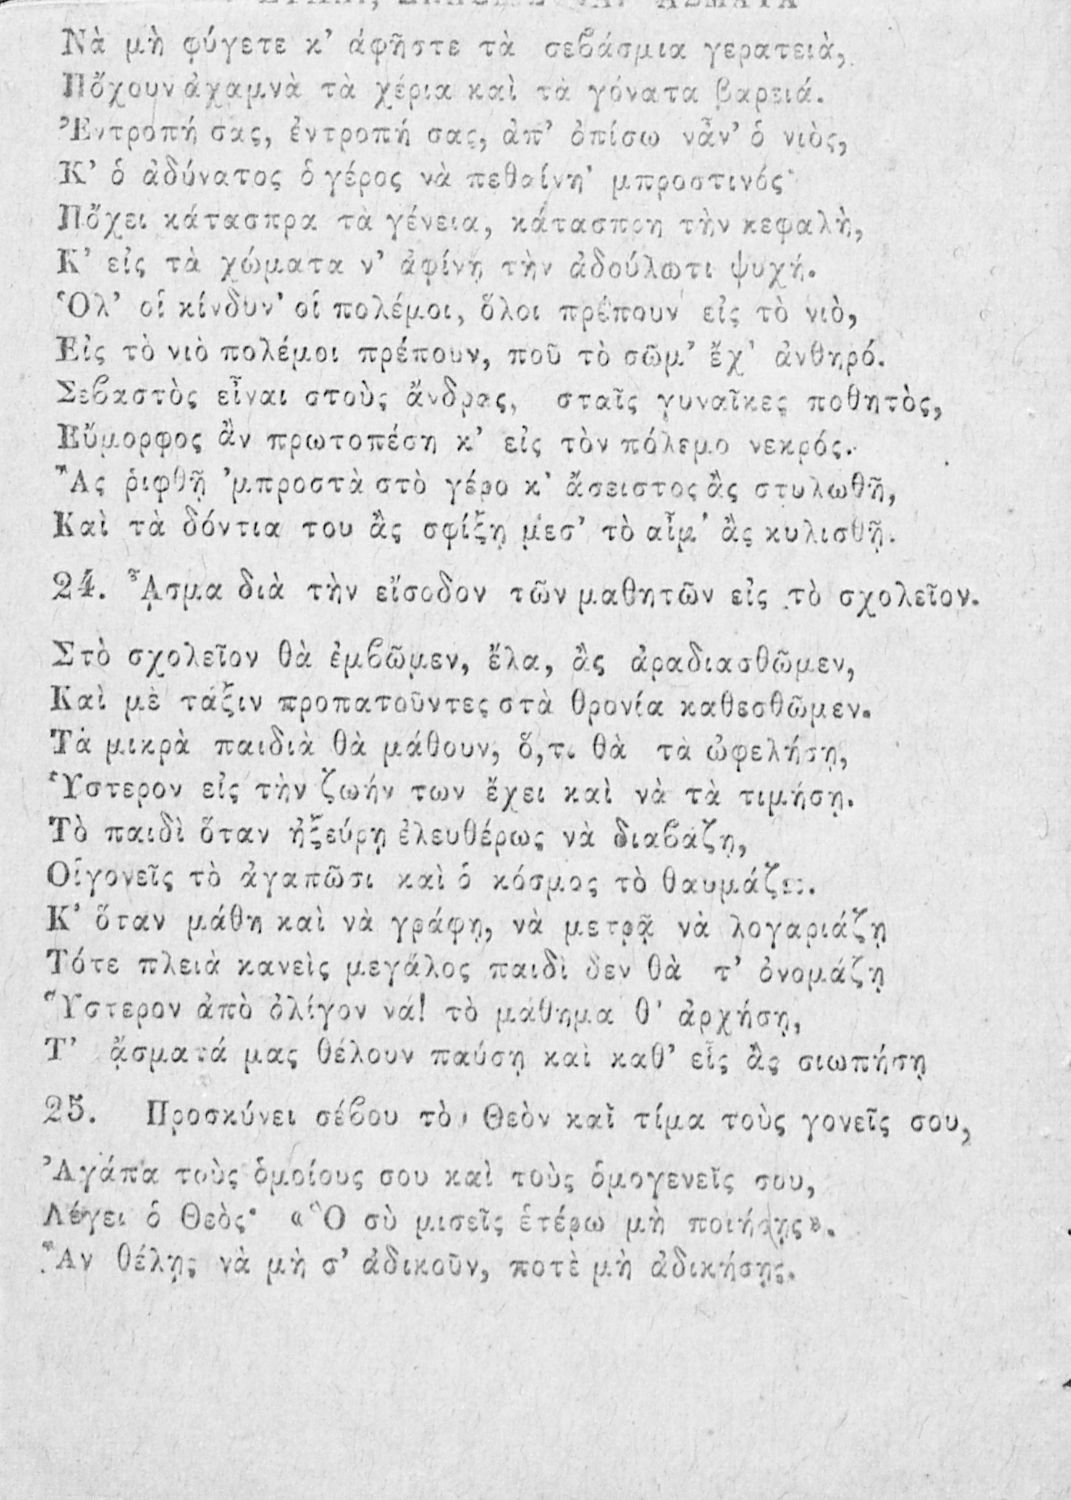 ᾌΣΜΑΤΑ
Νὰ μὴ φύγετε κ' ἀφῆστε τὰ σεβάσμια γερατειὰ,
Πὄχουν ἀχαμνὰ τὰ χέρια καὶ τὰ γόνατα βαρειά.
Ἐντροπή σας, ἐντροπή σας, ἀπ' ὀπίσω νἆν' ὁ νιὸς,
Κ' ὁ ἀδύνατος ὁ γέρος νὰ πεθαίνη' μπροστινός·
Πὄχει κάτασπρα τὰ γένεια, κάτασπρη τὴν κεφαλὴ,
Κ' εἰς τὰ χώματα ν' ἀφίνῃ τὴν ἀδούλωτι ψυχή.
Ὅλ' οἱ κίνδυν' οἱ πολέμοι, ὅλοι πρέπουν εἰς τὸ νιὸ,
Εἰς τὸ νιὸ πολέμοι πρέπουν, ποῦ τὸ σῶμ' ἔχ' ἀνθηρό.
Σεβαστὸς εἶναι στοὺς ἄνδρας, σταῖς γυναῖκες ποθητὸς,
Εὔμορφος ἂν πρωτοπέση κ' εἰς τὸν πόλεμο νεκρός.
Ἂς ῥιφθῇ 'μπροστὰ στὸ γέρο κ' ἄσειστος ἂς στυλωθῇ,
Καὶ τὰ δόντια του ἂς σφίξῃ μεσ' τὸ αἷμ' ἂς κυλισθῇ.
24. ᾎσμα διὰ τὴν εἴσοδον τῶν μαθητῶν εἰς τὸ σχολεῖον.
Στὸ σχολεῖον θὰ ἐμβῶμεν, ἔλα, ἂς ἀραδιασθῶμεν,
Καὶ μὲ τάξιν προπατοῦντες στὰ θρονία καθεσθῶμεν.
Τὰ μικρὰ παιδιὰ θὰ μάθουν, ὅ,τι θὰ τὰ ὠφελήσῃ,
Ὕστερον εἰς τὴν ζωήν των ἔχει καὶ νὰ τὰ τιμήσῃ.
Τὸ παιδὶ ὅταν ἠξεύρῃ ἐλευθέρως νὰ διαβάζῃ,
Οἱ γονεῖς τὸ ἀγαπῶσι καὶ ὁ κόσμος τὸ θαυμάζει.
Κ' ὅταν μάθη καὶ νὰ γράφῃ, νὰ μετρᾷ νὰ λογαριάζῃ
Τότε πλειὰ κανεὶς μεγάλος παιδὶ δεν θὰ τ' ὀνομάζῃ
Ὕστερον ἀπὸ ὀλίγον νά! τὸ μάθημα θ' ἀρχήσῃ,
Τ' ᾄσματά μας θέλουν παύσῃ καὶ καθ' εἷς ἂς σιωπήσῃ
25. Προσκύνει σέβου τὸν Θεὸν καὶ τίμα τοὺς γονεῖς σου,
Ἀγάπα τοὺς ὁμοίους σου καὶ τοὺς ὁμογενεῖς σου,
Λέγει ὁ Θεὸς· «Ὃ σὺ μισεῖς ἑτέρω μὴ ποιήσῃς».
Ἂν θέλῃς νὰ μὴ σ' ἀδικοῦν, ποτὲ μὴ ἀδικήσῃς.